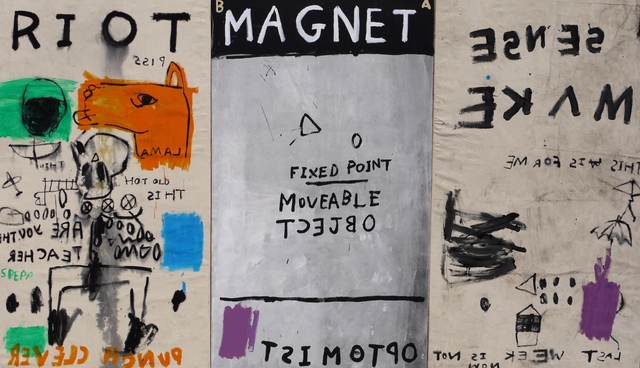 RIOT
PISS
LAMA
THIS IS
ARE YOU THE
TEACHER
PUNCH CLEVER
B MAGNET A
FIXED POINT
MOVEABLE
OBJECT
OPTOMIST
SENSE
MAKE
THIS IS FOR ME
LAST WEEK IS NOT
NOW